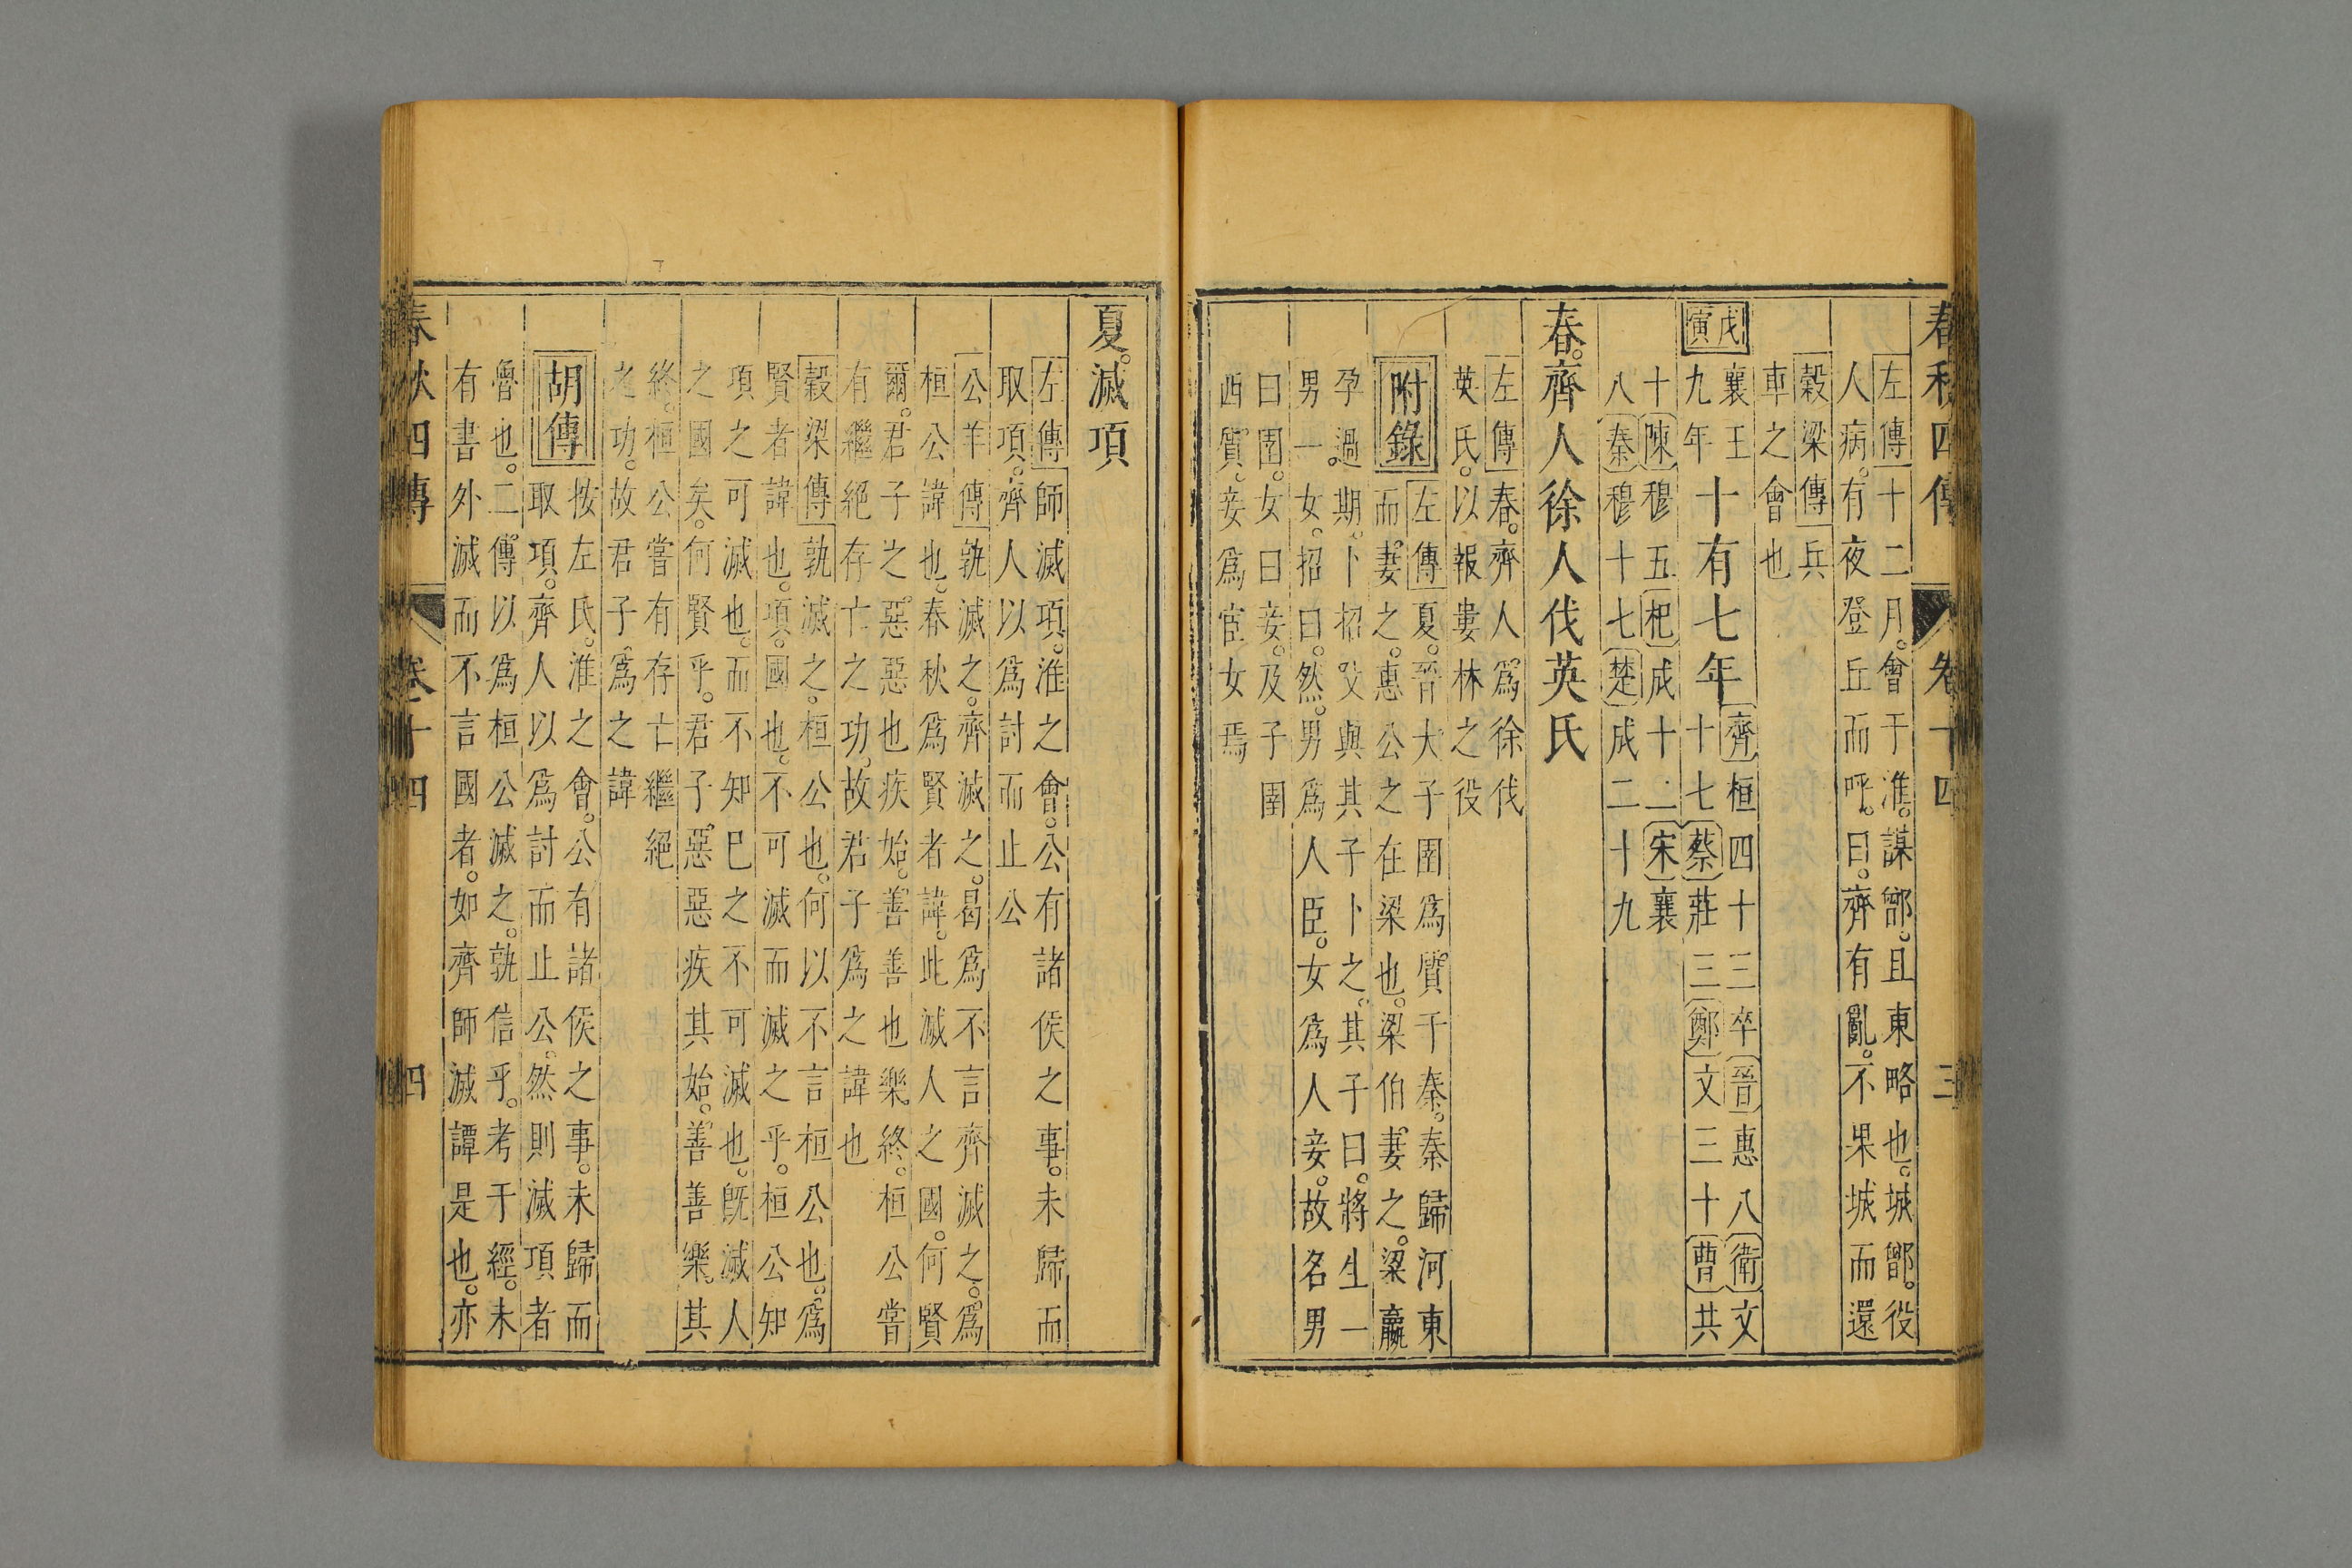 春秋四傳 卷十四 三
左傳十二月。會于淮。謀鄫。且東略也。城鄫。役
人病。有夜登丘而呼。曰。齊有亂。不果城而還
穀梁傳兵
車之會也
戊寅
襄王
九年
十有七年
齊桓四十三卒晉惠八衛文
十七蔡莊三鄭文三十曹共
十陳穆五杞成十二宋襄
八秦穆十七楚成二十九
春。齊人徐人伐英氏
左傳春。齊人爲徐伐
英氏。以報婁林之役
附錄
左傳夏。晉大子圉爲質于秦。秦歸河東
而妻之。惠公之在梁也。梁伯妻之。梁嬴
孕過期。卜招父與其子卜之。其子曰。將生一
男一女。招曰。然。男爲人臣。女爲人妾。故名男
曰圉。女曰妾。及子圉
西質。妾爲宦女焉
夏。滅項
左傳師滅項。淮之會。公有諸侯之事。未歸而
取項。齊人以爲討而止公
公羊傳孰滅之。齊滅之。曷爲不言齊滅之。爲
桓公諱也。春秋爲賢者諱。此滅人之國。何賢
爾。君子之惡惡也疾始。善善也樂終。桓公嘗
有繼絕存亡之功。故君子爲之諱也
穀梁傳孰滅之。桓公也。何以不言桓公也。爲
賢者諱也。項。國也。不可滅而滅之乎。桓公知
項之可滅也。而不知已之不可滅也。旣滅人
之國矣。何賢乎。君子惡惡疾其始。善善樂其
終。桓公嘗有存亡繼絕
之功。故君子爲之諱
胡傳
按左氏。淮之會。公有諸侯之事。未歸而
取項。齊人以爲討而止公。然則滅項者
魯也。二傳以爲桓公滅之。孰信乎。考于經。未
有書外滅而不言國者。如齊師滅譚是也。亦
春秋四傳 卷十四 四